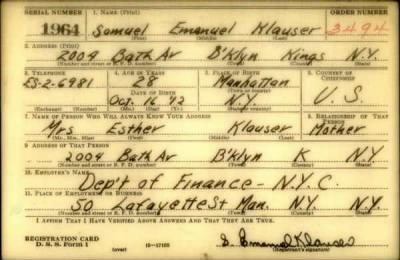 SERIAL NUMBER 1. NAME (Print) ORDER NUMBER
1964 Samuel Emanuel Klauser 3494
(First) (Middle) (Last)
2. ADDRESS (Print)
2009 Bath Av B'klyn Kings N.Y.
(Number and street or R. F. D. number) (Town) (County) (State)
3. TELEPHONE 4. AGE IN YEARS 5. PLACE OF BIRTH 6. COUNTRY OF CITIZENSHIP
ES-2-6981 28 Manhattan
DATE OF BIRTH (Town or county)
Oct. 16 '12 N.Y. U.S.
(Exchange) (Number) (Mo.) (Day) (Yr.) (State or country)
7. NAME OF PERSON WHO WILL ALWAYS KNOW YOUR ADDRESS 8. RELATIONSHIP OF THAT PERSON
Mrs Esther Klauser Mother
(Mr., Mrs., Miss) (First) (Middle) (Last)
9. ADDRESS OF THAT PERSON
2009 Bath Av B'klyn K N.Y.
(Number and street or R. F. D. number) (Town) (County) (State)
10. EMPLOYER'S NAME
Dep't of Finance - N.Y.C.
11. PLACE OF EMPLOYMENT OR BUSINESS
50 Lafayette St Man. N.Y. N.Y.
(Number and street or R. F. D. number) (Town) (County) (State)
I AFFIRM THAT I HAVE VERIFIED ABOVE ANSWERS AND THAT THEY ARE TRUE.
REGISTRATION CARD
D. S. S. Form 1 (over) 16-17105 S. Emanuel Klauser
(Registrant's signature)